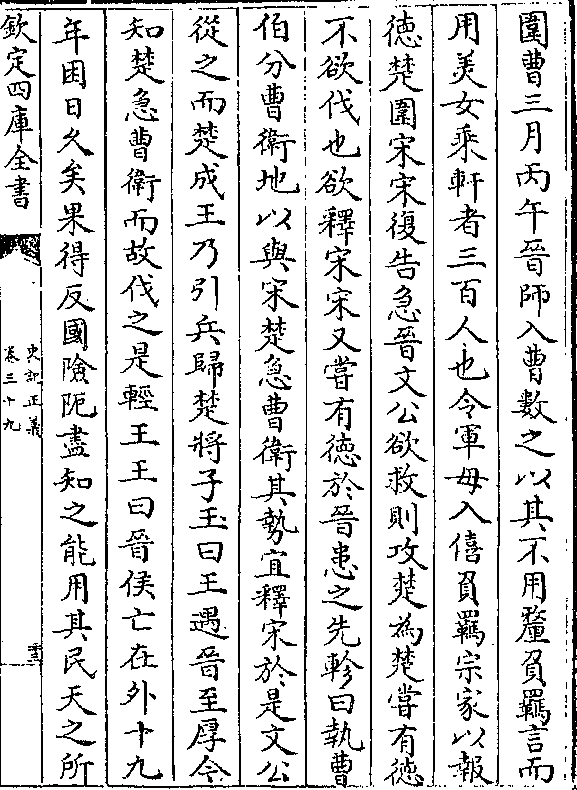 圍曹三月丙午晉師入曹數之以其不用釐負羈言而
用美女乘軒者三百人也令軍毋入僖負羈宗家以報
德楚圍宋宋復告急晉文公欲救則攻楚為楚嘗有德
不欲伐也欲釋宋宋又嘗有德於晉患之先軫曰執曹
伯分曹衛地以與宋楚急曹衛其勢宜釋宋於是文公
從之而楚成王乃引兵歸楚將子玉曰王遇晉至厚今
知楚急曹衛而故伐之是輕王王曰晉侯亡在外十九
年困日久矣果得反國險阨盡知之能用其民天之所
欽定四庫全書
史記正義
卷三十九